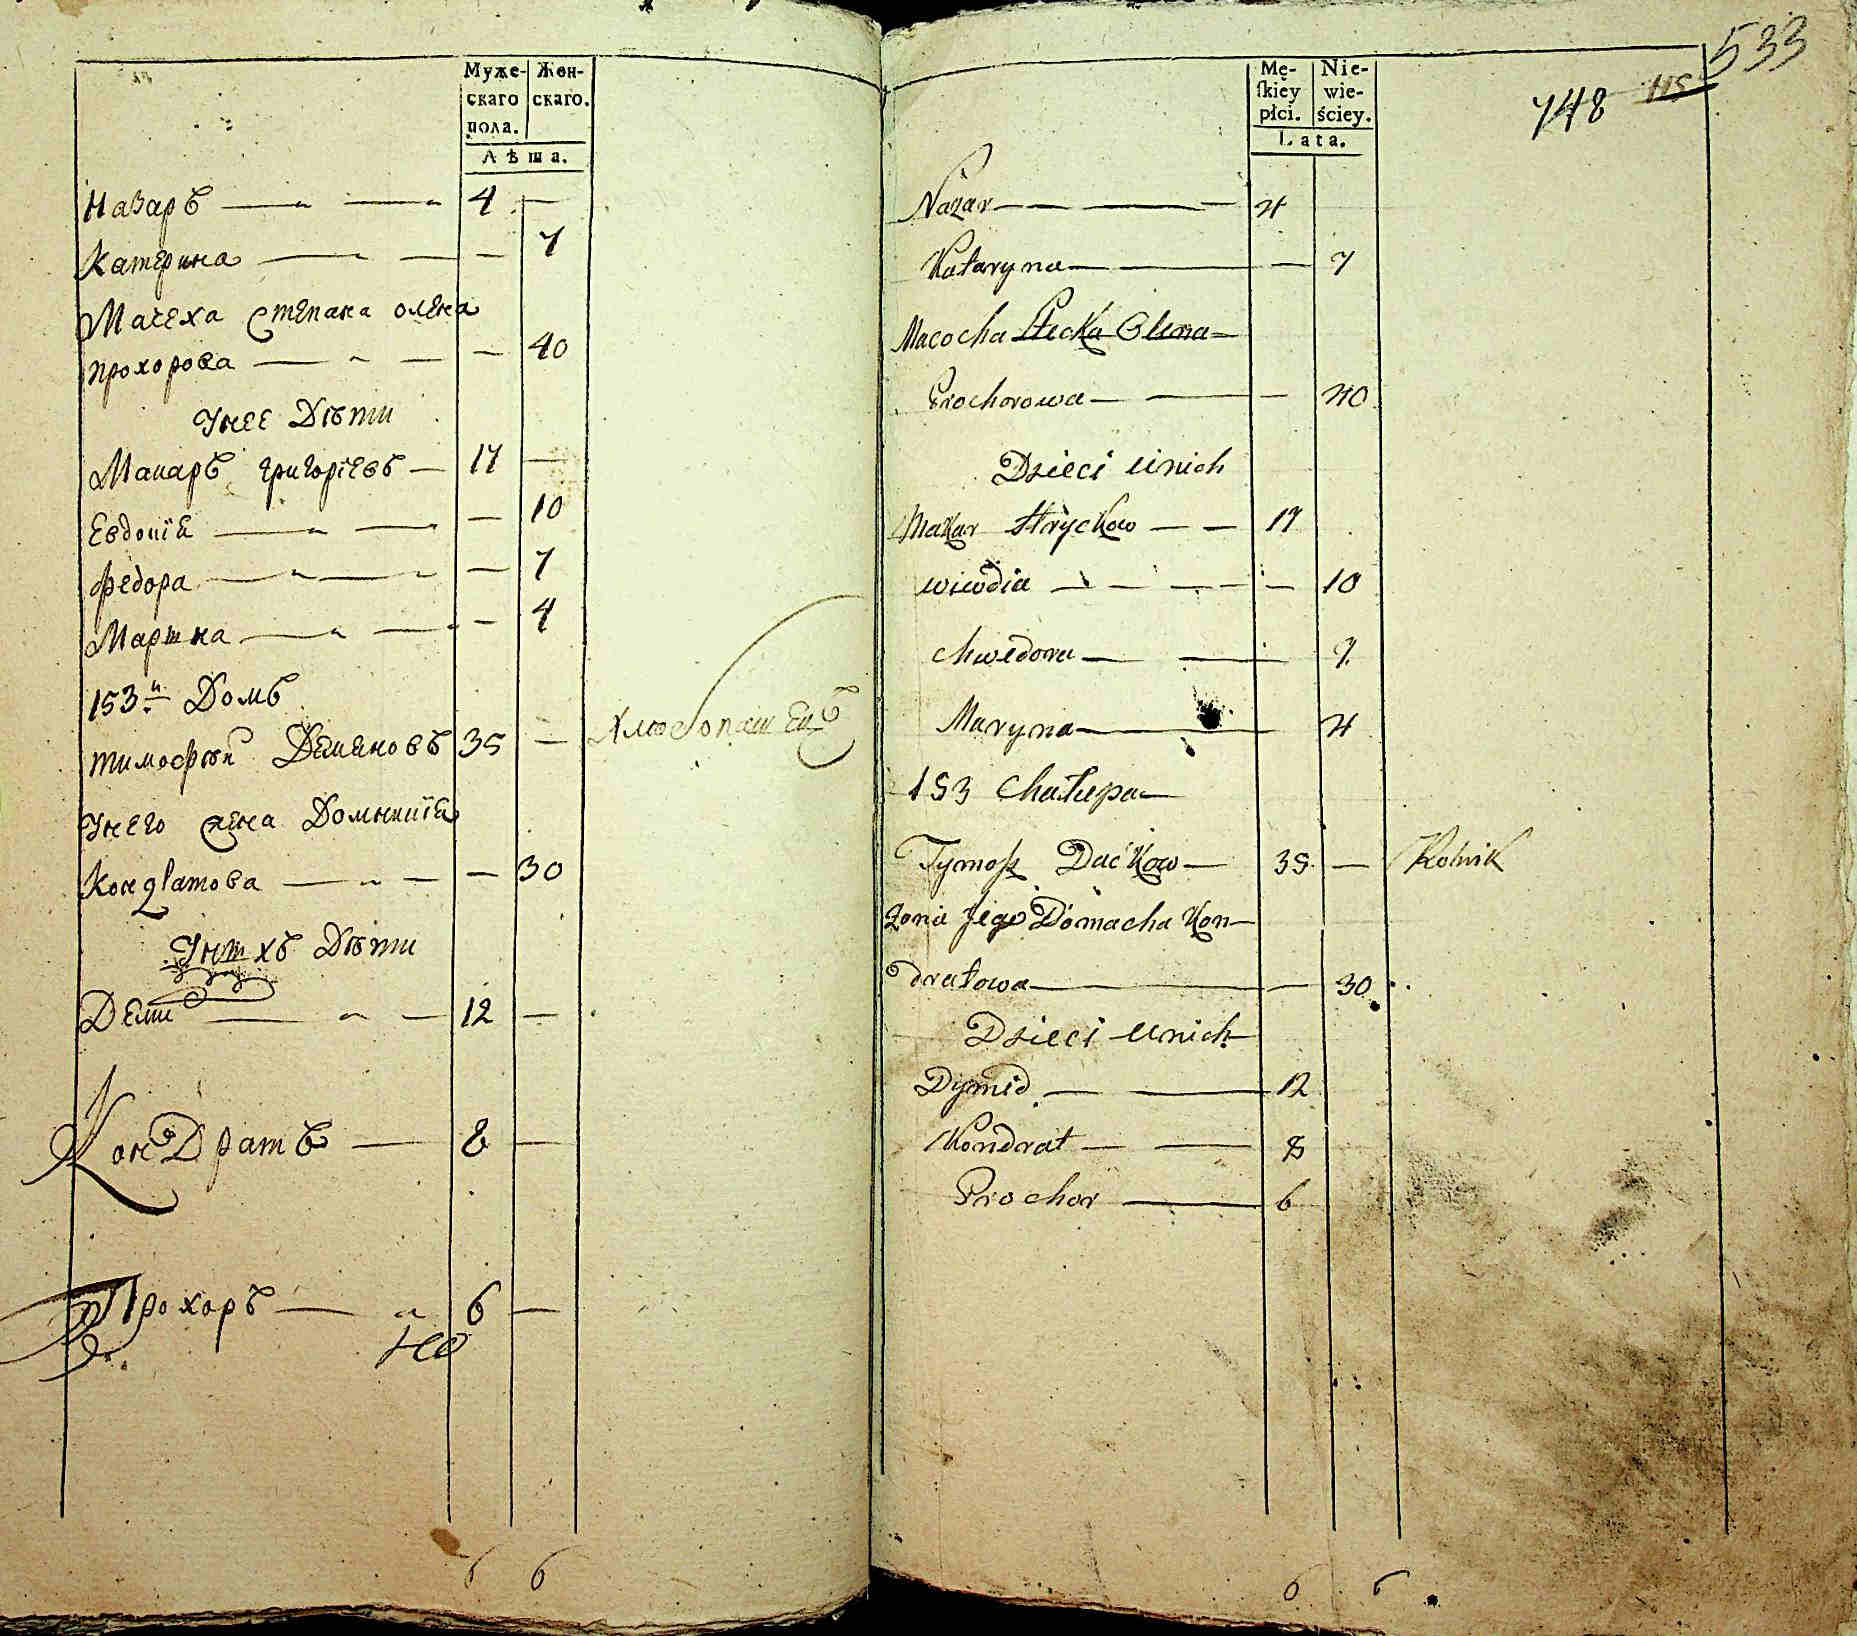 Муже-
скаго
пола.
Жен-
скаго.
Лѣта.
Назаръ 4 —
Катерина — 7
Мачеха Степана олена
прохорова — 40
Унее Дѣти
Макаръ григорїевъ — 17 —
Евдокїя — 10
Федора — 7
Марина — 4
153й Домъ
тимофѣй Демяновъ 35 — Хлѣбопашецъ
Унего жена Домникїя
Кондратова — 30
Унихъ Дѣти
Деми 12 —
КонДратъ — 8 —
Прохоръ — 6 —
6 6
533
115
748
Mę-
ſkiey
płci.
Nie-
wie-
ściey.
Lata.
Nazar 4
Kataryna — 7
Macocha Stecka Olena
Prochorowa — 40
Dzieci unich
Makar Hryckow — 17
wiwdia — 10
Chwedora — 7
Maryna 4
153 Chałupa
Tymosz Dackow — 35 — Rolnik
Zona Jego Domacha Kon-
dratowa — 30
Dzieci unich
Dymid — 12
Kondrat — 8
Prochor — 6
6 6